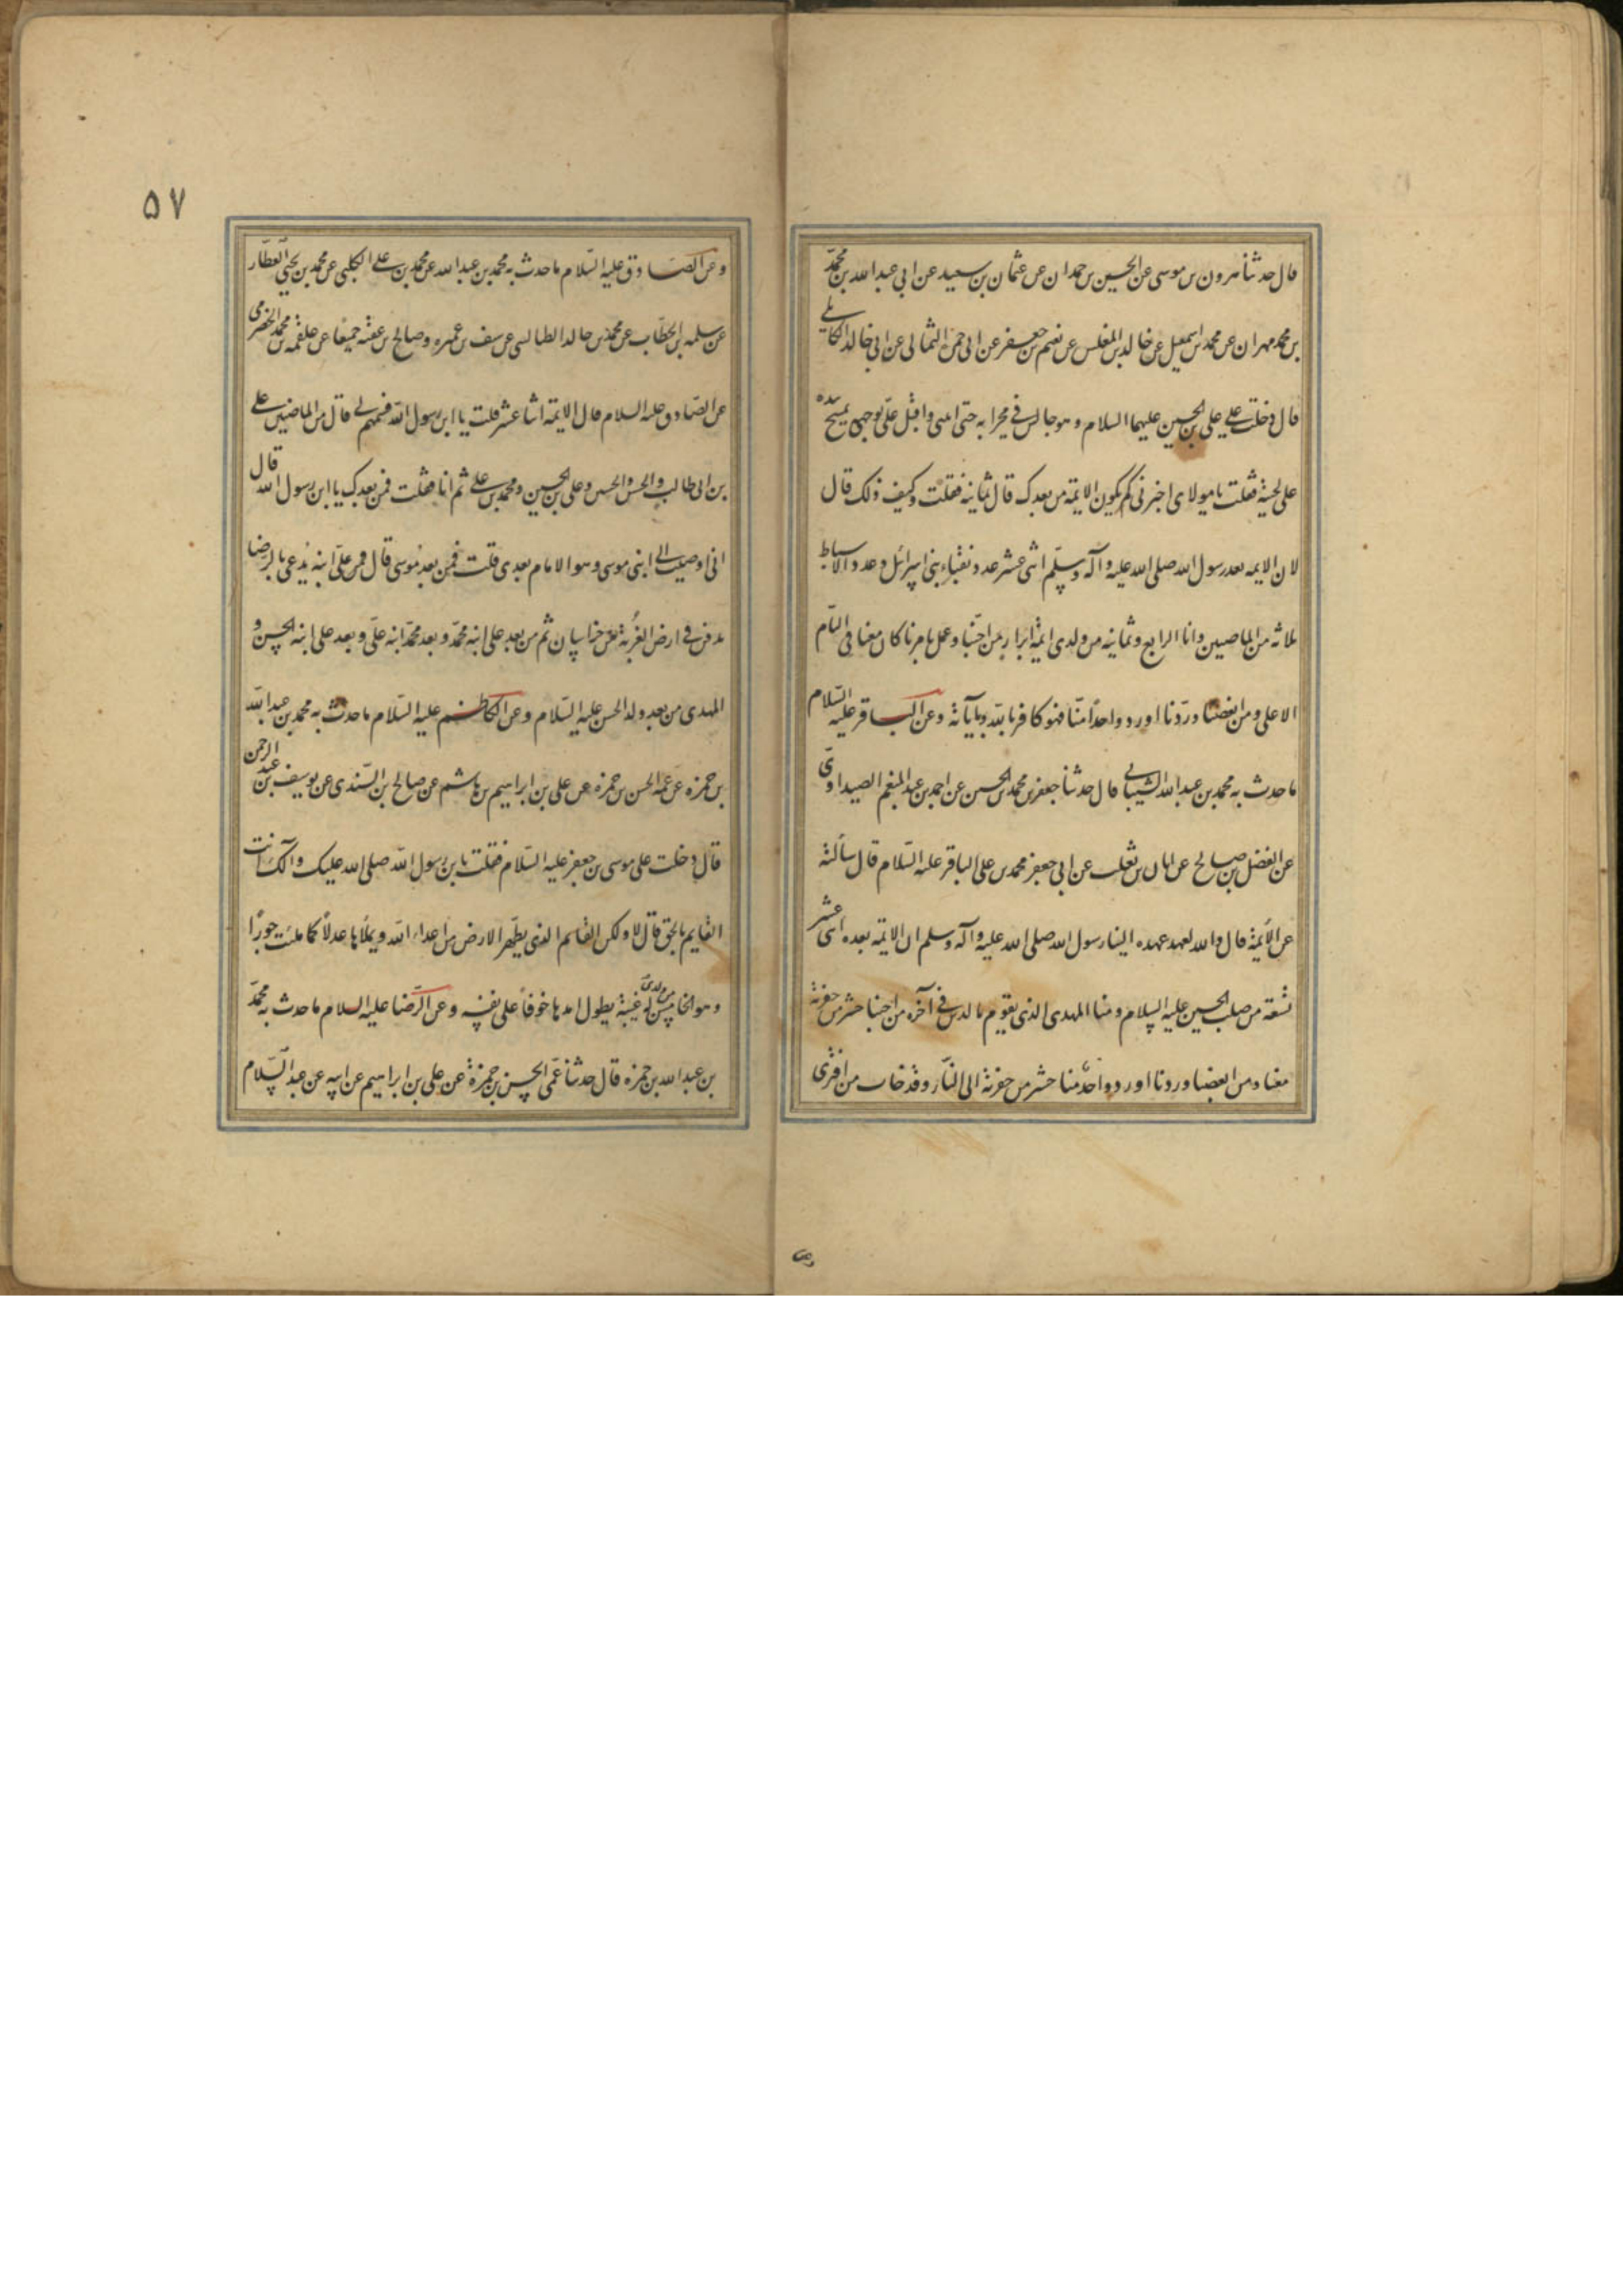 قال حدثنا هرون بن موسى عن الحسين بن حمدان عن عثمان بن سعيد عن ابي عبد الله بن محمد
بن محمد مهران عن محمد بن اسمعيل عن خالد بن المغلس عن نعيم بن جعفر عن ابي حمزة الثمالي عن ابي خالد الكابلي
قال دخلت علي علي بن الحسين عليهما السلام وهو جالس في محرابه حتى امسى واقبل علي بوجهه يمسح يده
على لحيته فقلت يا مولاى اخبرنى كم يكون الايمة من بعدك قال ثمانية فقلت وكيف ذلك قال
لان الايمه بعد رسول الله صلى الله عليه وآله وسلم اثنى عشر عدد نقباء بنى اسرائل وعدد الاسباط
ثلاثه من الماضيين وانا الرابع وثمانيه من ولدى ايمة ابرار من احبنا وعمل بامرنا كان معنا فى السنام
الاعلى ومن ابغضنا وردنا او رد واحدا منا فهو كافر بالله وباياته وعن الباقر عليه السلام
ما حدث به محمد بن عبد الله الشيباني قال حدثنا جعفر بن محمد بن الحسين عن احمد بن عبد المنعم الصيداوى
عن الفضل بن صالح عن ابان بن تغلب عن ابى جعفر محمد بن على الباقر عليه السلام قال سألته
عن الأيمة قال والله لعهد عهده الينا رسول الله صلى الله عليه وآله وسلم ان الايمة بعده اثنى عشر
تسعة من صلب الحسين عليه السلام ومنا المهدى الذى يقوم بالدين في آخره من احبنا حشر من حفرته
معنا ومن ابغضنا وردنا او رد واحد منا حشر من حفرته الى النار وقد خاب من افترى
۵۷
وعن الصادق عليه السلام ما حدث به محمد بن عبد الله عن محمد بن علي الكلبى عن محمد بن يحيى العطار
عن سلمه بن الخطاب عن محمد بن خالد الطيالسى عن سيف بن عميره وصالح بن عقبه جميعا عن علقمة بن محمد الحضرمى
عن الصادق عليه السلام قال الايمة اثنا عشر قلت يا ابن رسول الله فسمهم لى قال من الماضيين علي
بن ابى طالب والحسن والحسين وعلى بن الحسين ومحمد بن علي ثم انا فقلت فمن بعدك يا ابن رسول الله قال
انى اوصيت الى ابنى موسى وهو الامام بعدى قلت فمن بعد موسى قال قال فمن على ابنه يدعى بالرضا
يدفن في ارض الغربة من خراسان ثم من بعد على ابنه محمد وبعد محمد ابنه على وبعد على ابنه الحسن و
المهدى من بعده ولد الحسن عليه السلام وعن الكاظم عليه السلام ما حدث به محمد بن عبد الله
بن حمزه عن عمه الحسن بن حمزه عن على بن ابراهيم بن هاشم عن صالح بن السندى عن يوسف بن عبد الرحمن
قال دخلت على موسى بن جعفر عليه السلام فقلت يا بن رسول الله صلى الله عليك وآلك انت
القايم بالحق قال لا ولكن القايم الذى يطهر الارض من اعداء الله ويملأها عدلا كما ملئت جورا
وهو الخامس من ولدى له غيبة يطول امدها خوفا على نفسه وعن الرضا عليه السلام ما حدث به محمد
بن عبد الله بن حمزه قال حدثنا عمى الحسن بن حمزة عن على بن ابراهيم عن ابيه عن عبد السلام